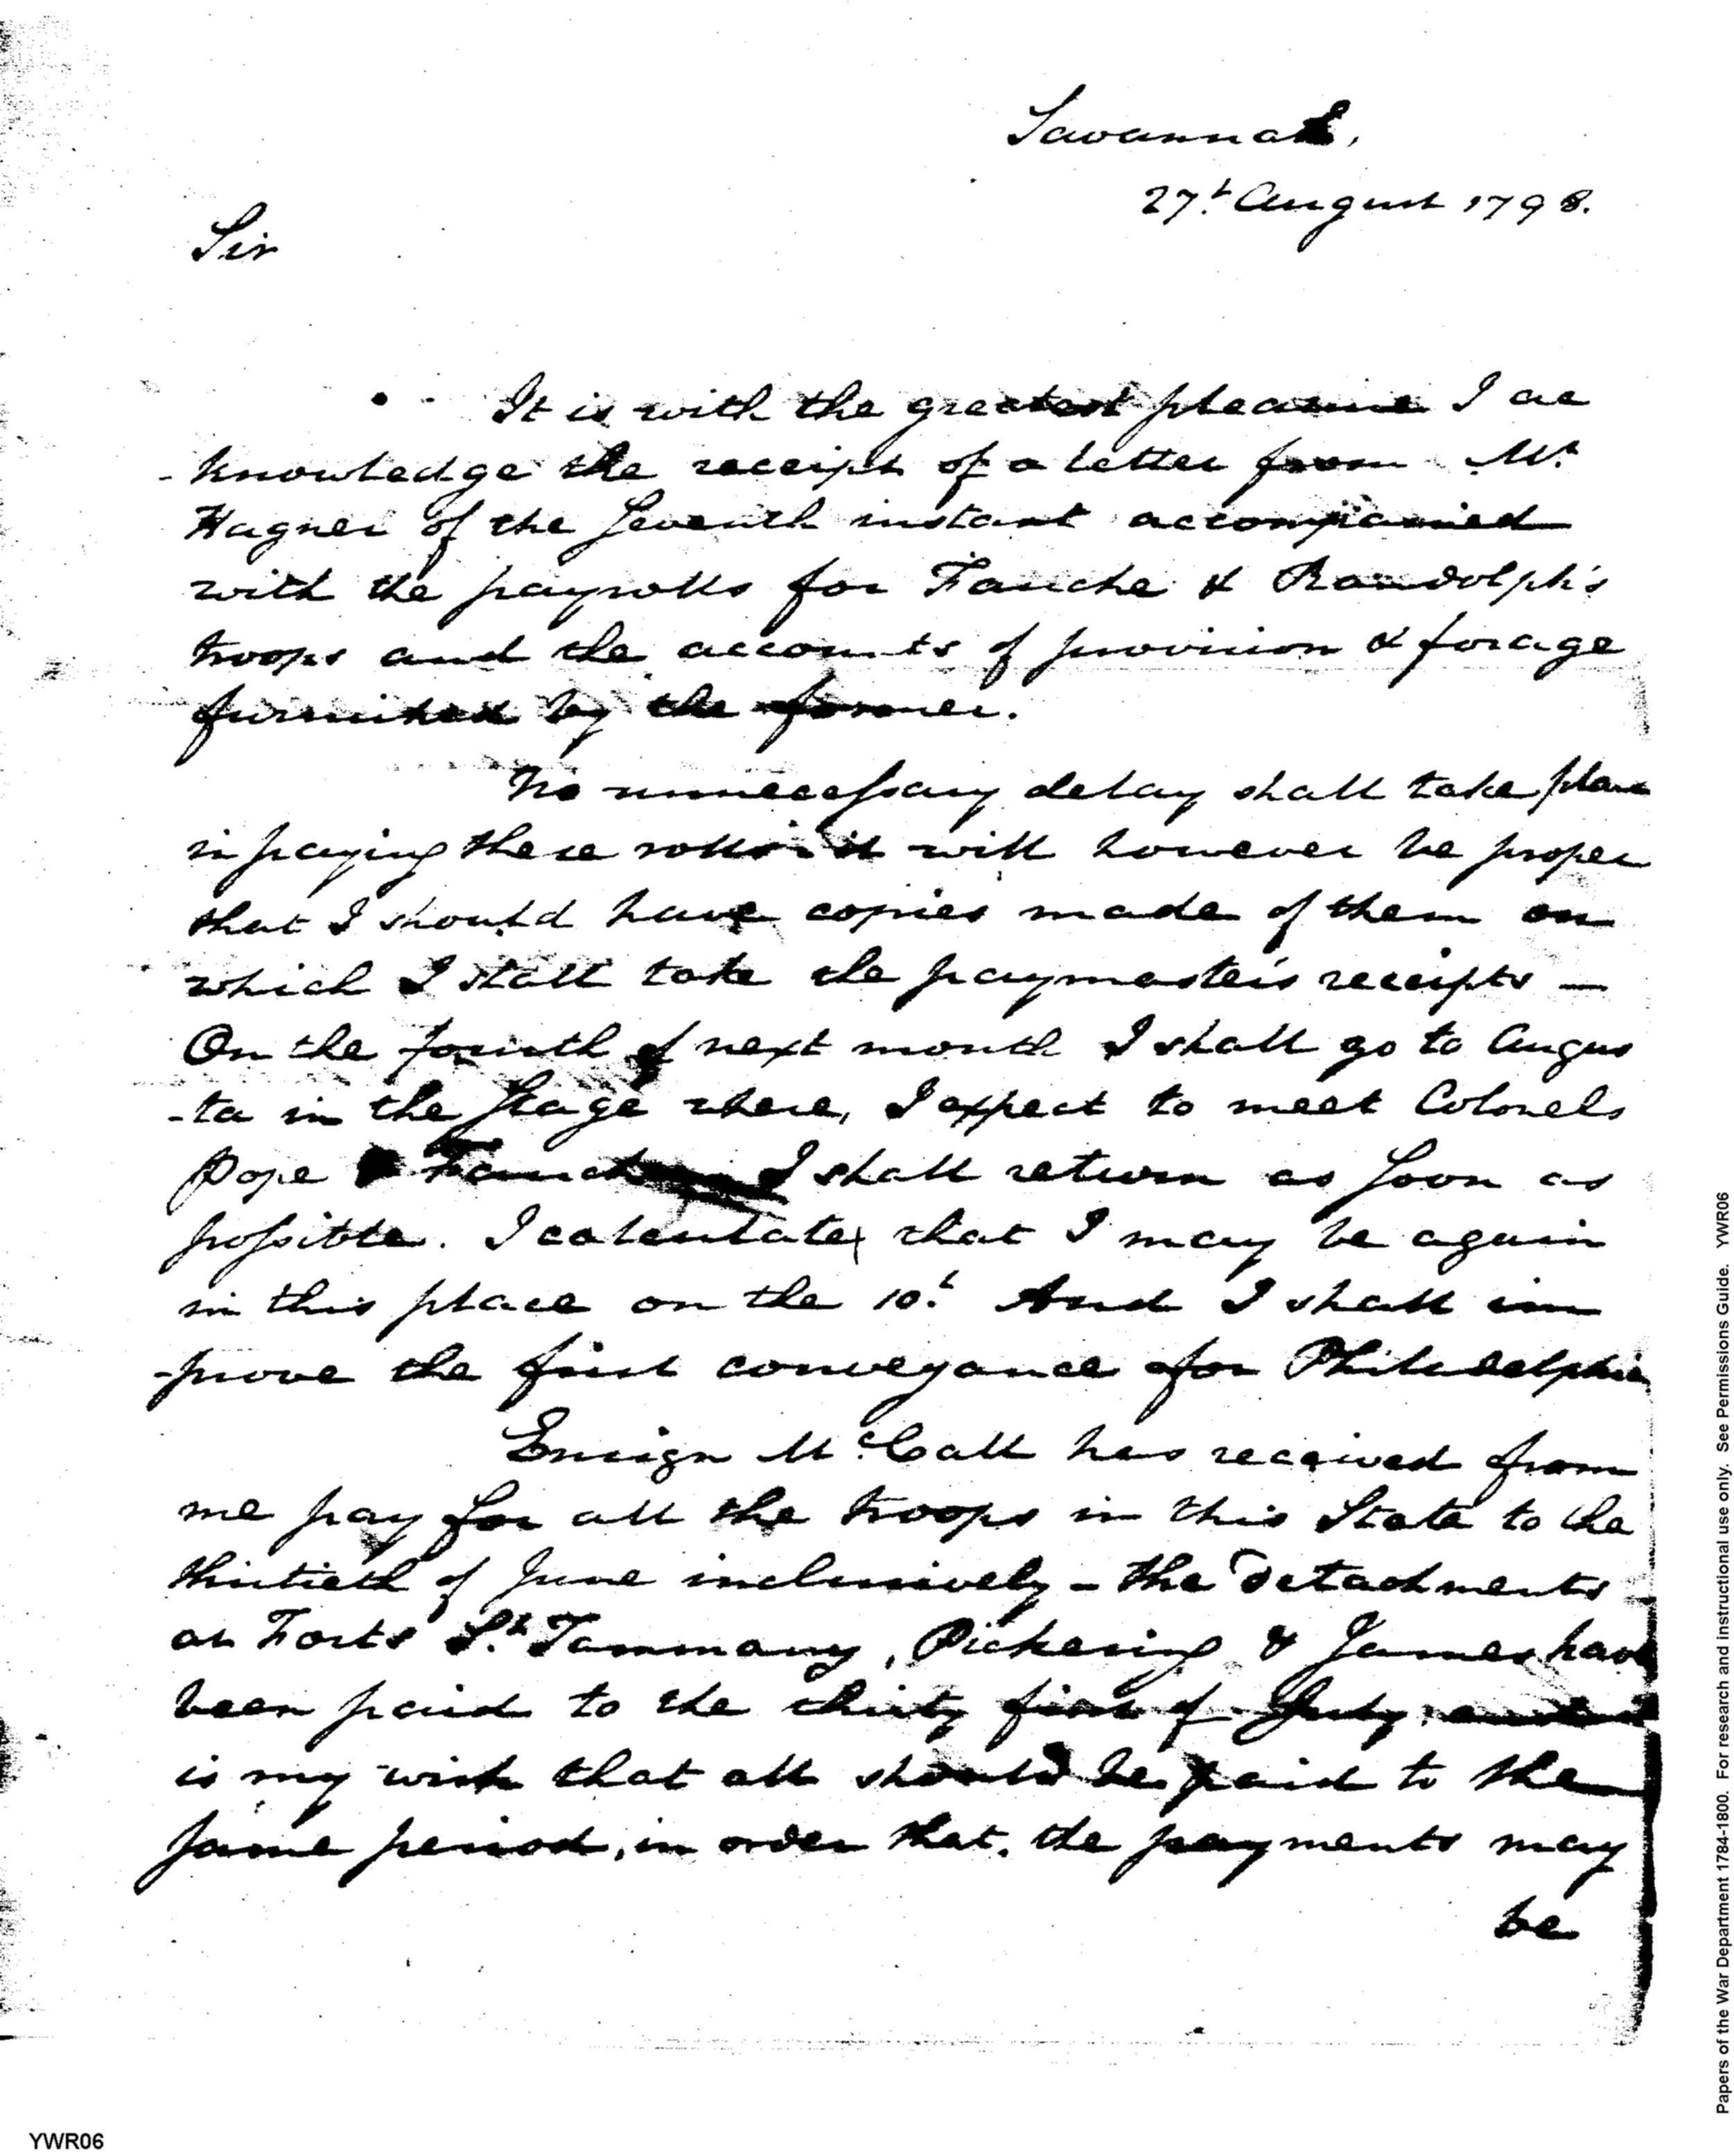 Savannah,
27.t August 1798.
Sir
It is with the greatest pleasure I ac
-knowledge the receipt of a letter from Mr.
Hagner of the Seventh instant accompanied
with the payrolls for Fauche & Randolph's
troops and the accounts of provision & forage
furnished by the former.
No unnecessary delay shall take place
in paying these rolls it will however be proper
that I should have copies made of them on
which I shall take the paymaster's receipts —
On the fourth of next month I shall go to Augus
-ta in the Stage where, I expect to meet Colonels
Pope I shall return as Soon as
possible. I calculate that I may be again
in this place on the 10.t And I shall im
-prove the first conveyance for Philadelphia
Ensign McCall has received from
me pay for all the troops in this State to the
thirtieth of June inclusively - the Detachments
at Forts St. Tammany, Pickering & James have
been paid to the thirty first of July,
is my wish that all should be paid to the
same period, in order that, the payments may
be
Papers of the War Department 1784-1800. For research and instructional use only. See Permissions Guide. YWR06
YWR06